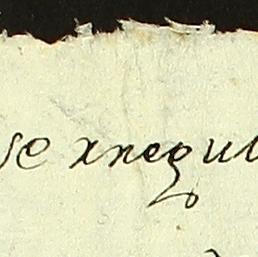 se xnequi